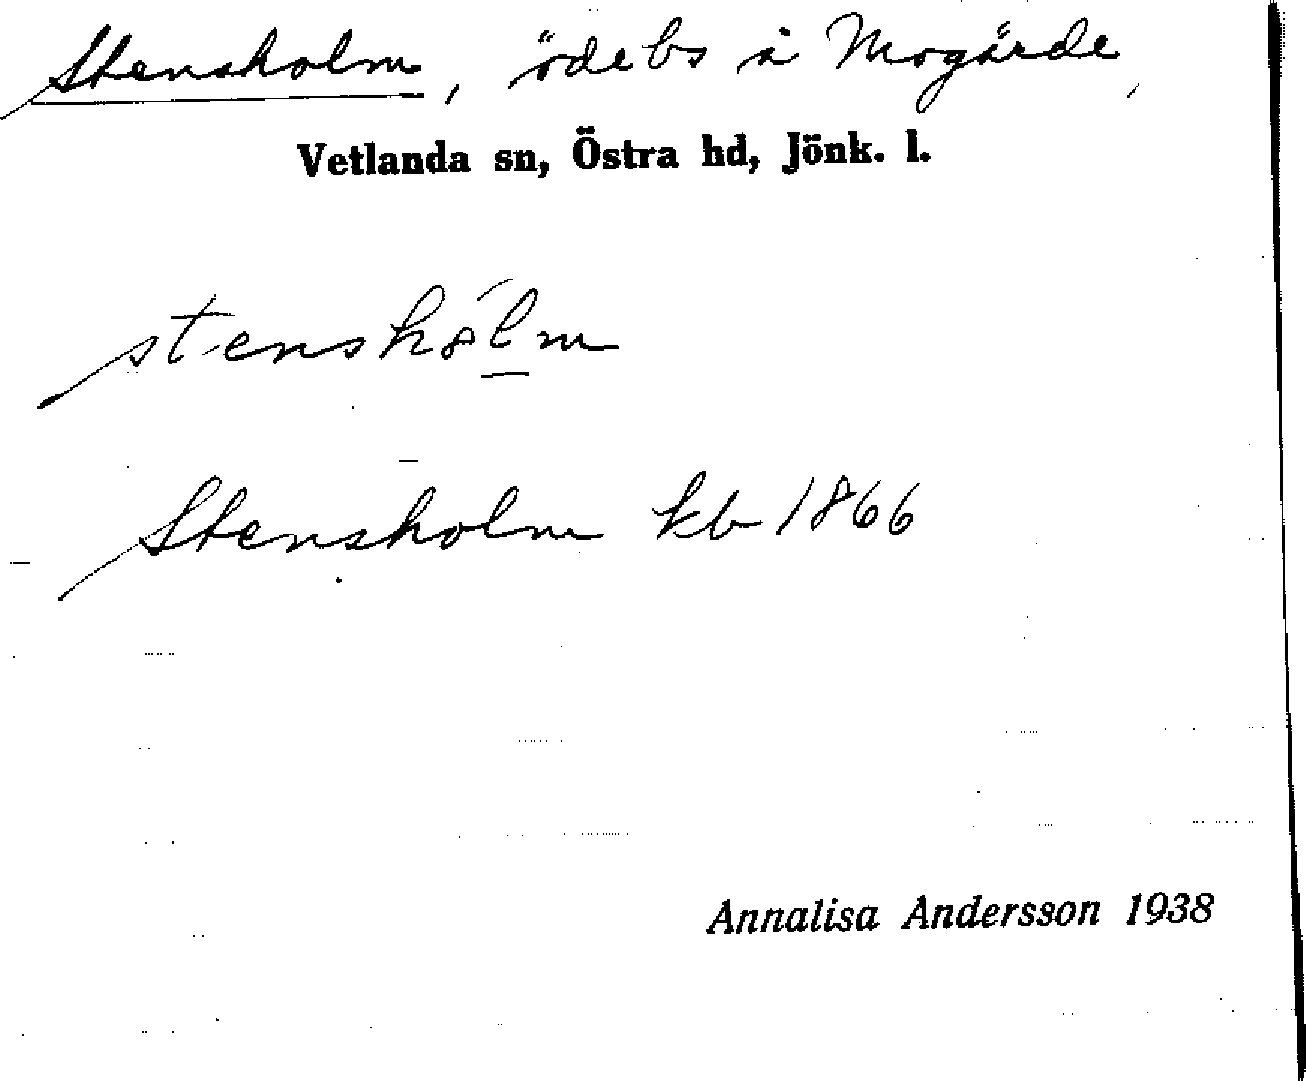 Stensholm, ödebs å Mogärde,
Vetlanda sn, Östra hd, Jönk. l.
stenshólm
Stensholm kb 1866
Annalisa Andersson 1938